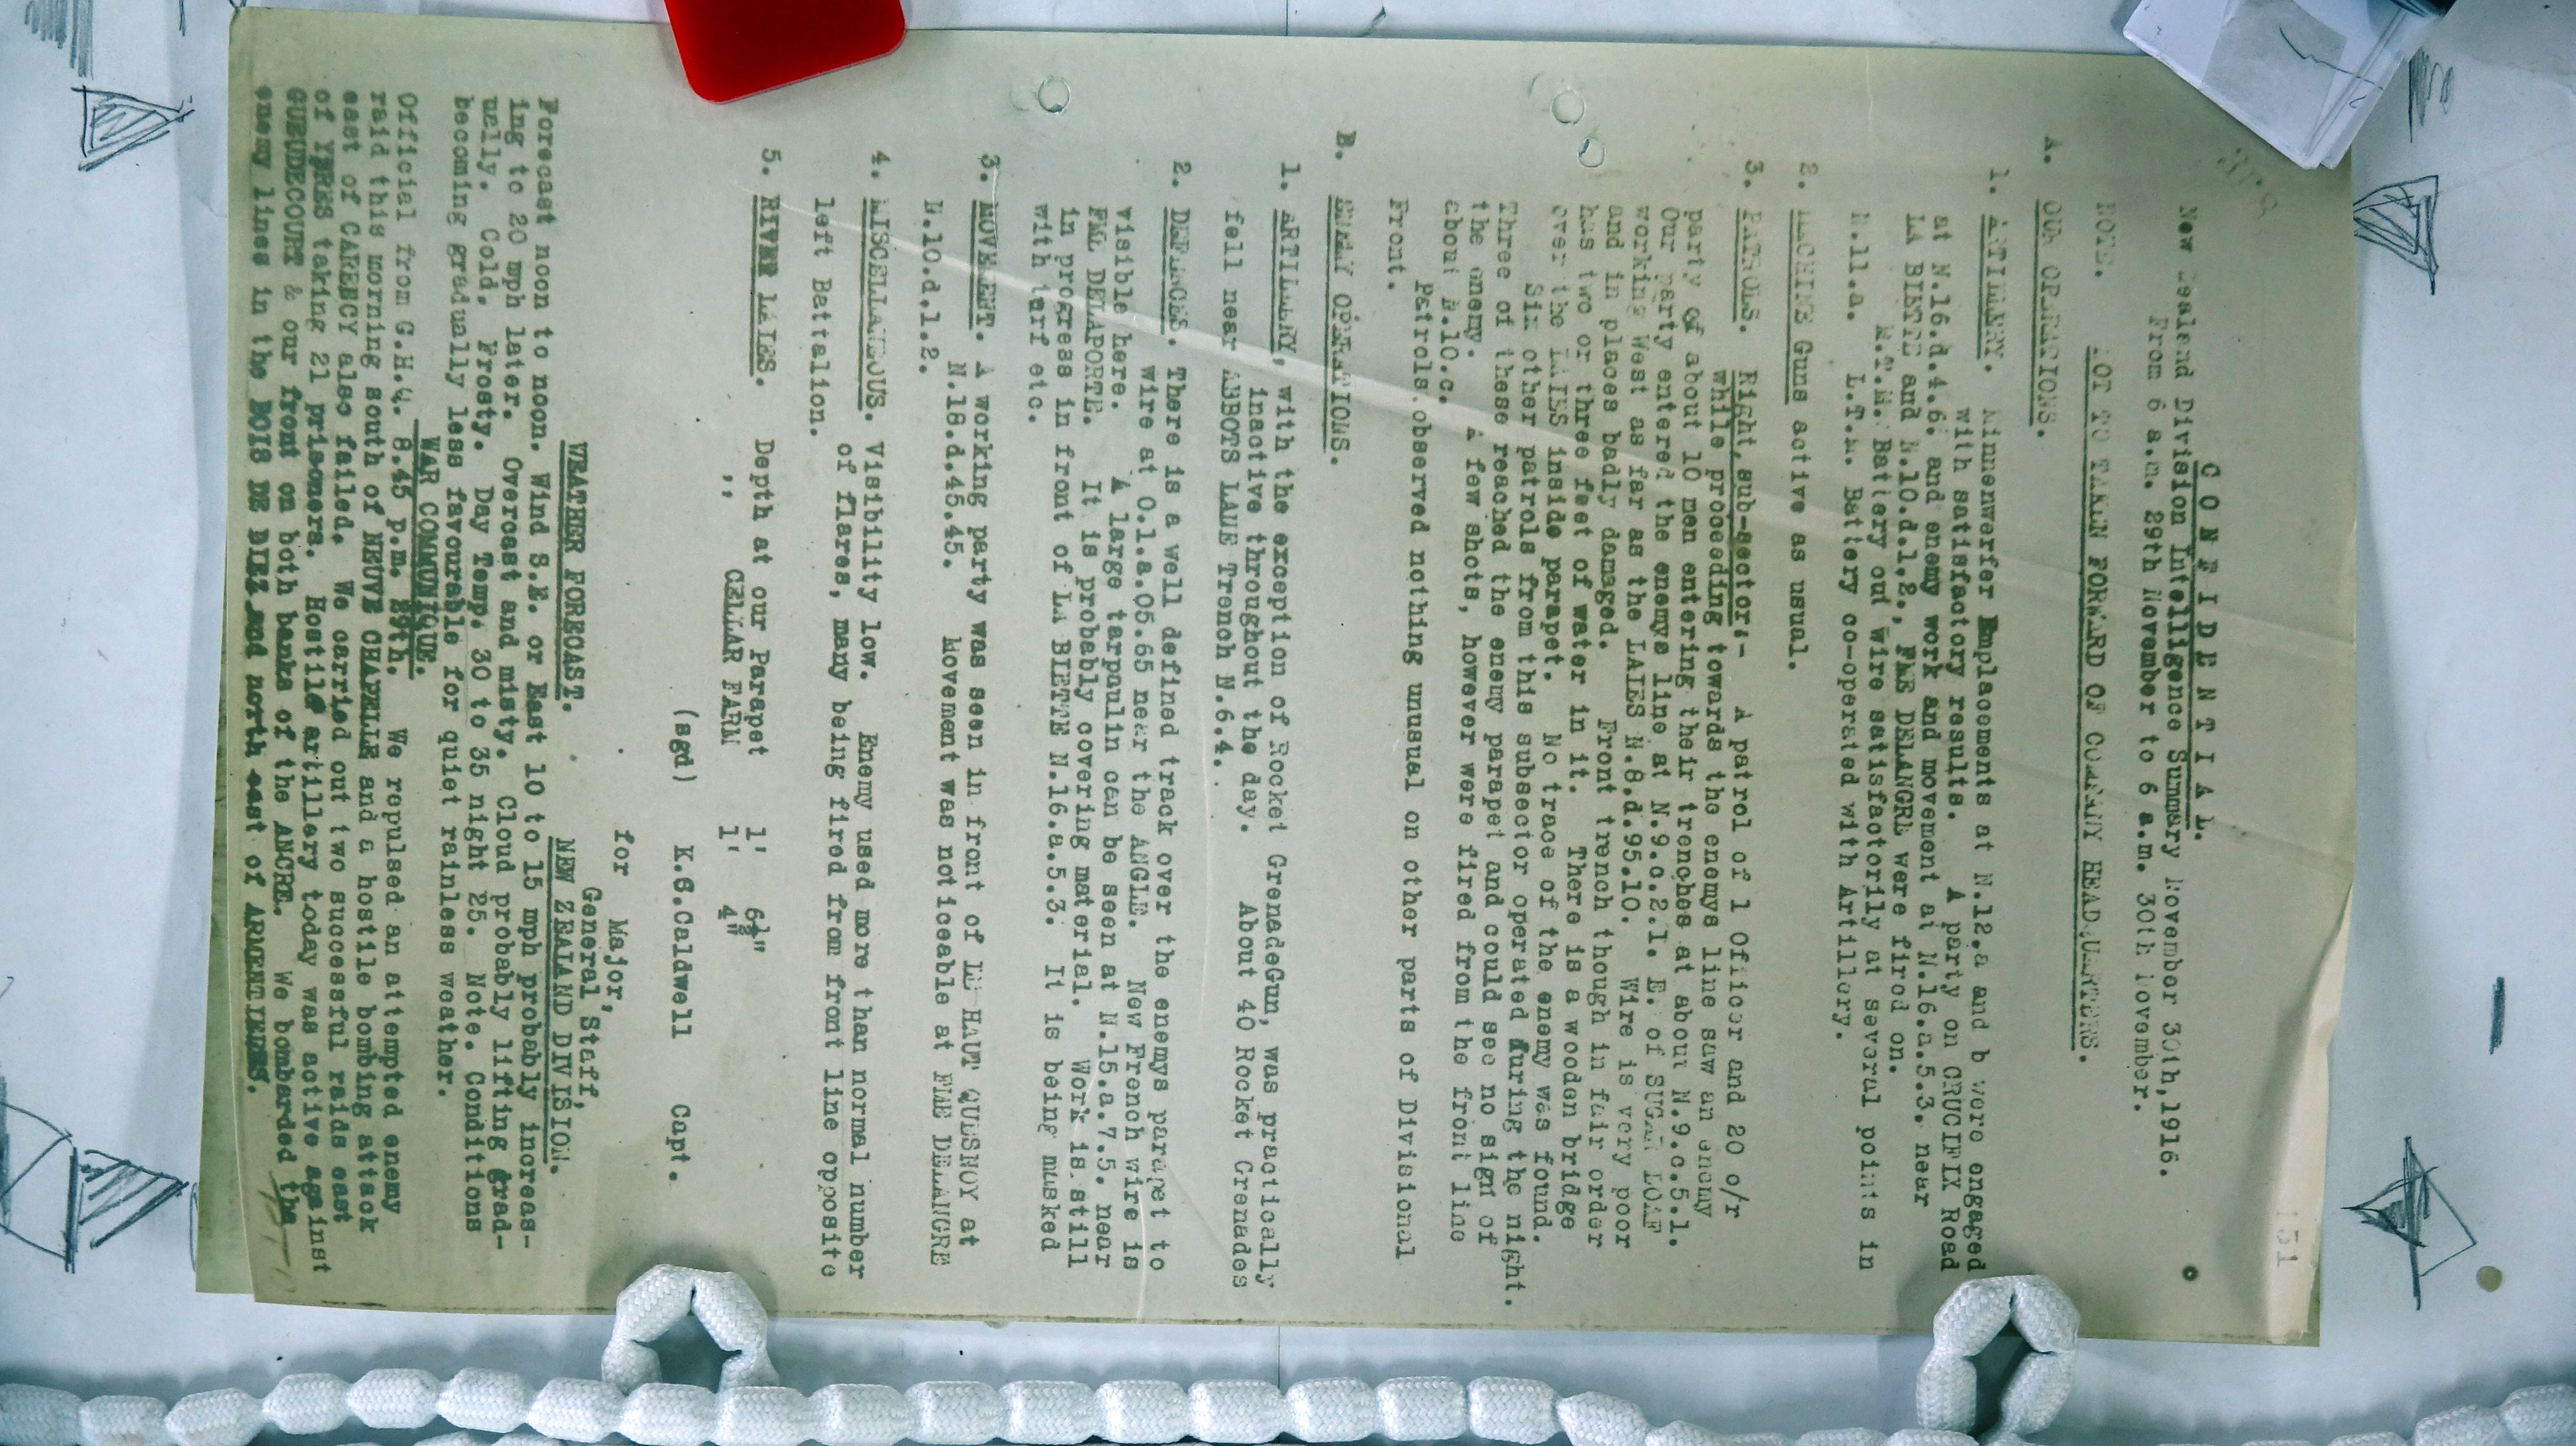 151
C O N F I D E N T I A L.
New Zealand Division Intelligence Summary November 30th,1916.
From 6 a.m. 29th November to 6 a.m. 30th November.
NOTE. NOT TO TAKEN FORWARD OF COMPANY HEADQUARTERS.
A. OUR OPERATIONS.
1. ARTILLERY. Minnenwerfer Emplacements at N.12.a and b were engaged
with satisfactory results. A party on CRUCIFIX Road
at N.16.d.4.6. and enemy work and movement at N.16.a.5.3. near
LA BIETTE and N.10.d.1.2, FME DELANGRE were fired on.
M.T.M. Battery cut wire satisfactorily at several points in
N.11.a. L.T.M. Battery co-operated with Artillery.
2. MACHINE Guns active as usual.
3. PATROLS. Right sub-sector:- A patrol of 1 Officer and 20 o/r
while proceeding towards the enemys line saw an enemy
party of about 10 men entering their trenches at about N.9.c.5.1.
Our party entered the enemys line at N.9.c.2.1. E. of SUGAR LOAF
working West as far as the LAIES N.8.d.95.10. Wire is very poor
and in places badly damaged. Front trench though in fair order
has two or three feet of water in it. There is a wooden bridge
over the LAIES inside parapet. No trace of the enemy was found.
Six other patrols from this subsector operated during the night.
Three of these reached the enemy parapet and could see no sign of
the enemy. A few shots, however were fired from the front line
about N.10.c.
Patrols observed nothing unusual on other parts of Divisional
Front.
B. ENEMY OPERATIONS.
1. ARTILLERY, with the exception of Rocket GrenadeGun, was practically
inactive throughout the day. About 40 Rocket Grenades
fell near ABBOTS LANE Trench N.6.4.
2. DEFENCES. There is a well defined track over the enemys parapet to
wire at O.1.a.05.65 near the ANGLE. New French wire is
visible here. A large tarpaulin can be seen at N.15.a.7.5. near
FME DELAPORTE. It is probably covering material. Work is still
in progress in front of LA BIETTE N.16.a.5.3. It is being masked
with turf etc.
3. MOVEMENT. A working party was seen in front of LE HAUT QUESNOY at
N.18.d.45.45. Movement was noticeable at FME DELANGRE
N.10.d.1.2.
4. MISCELLANEOUS. Visibility low. Enemy used more than normal number
of flares, many being fired from front line opposite
left Battalion.
5. RIVER LAIES. Depth at our Parapet 1' 6½"
,, CELLAR FARM 1' 4"
(sgd) K.S.Caldwell Capt.
for Major,
General Staff,
NEW ZEALAND DIVISION.
WEATHER FORECAST.
Forecast noon to noon. Wind S.E. or East 10 to 15 mph probably increas-
ing to 20 mph later. Overcast and misty. Cloud probably lifting grad-
ually. Cold. Frosty. Day Temp. 30 to 35 night 25. Note. Conditions
becoming gradually less favourable for quiet rainless weather.
WAR COMMUNIQUE.
Official from G.H.Q. 8.45 p.m. 29th. We repulsed an attempted enemy
raid this morning south of NEUVE CHAPELLE and a hostile bombing attack
east of CARENCY also failed. We carried out two successful raids east
of YPRES taking 21 prisoners. Hostile artillery today was active against
GUEUDECOURT & our front on both banks of the ANCRE. We bombarded the
enemy lines in the BOIS DE BIEZ and north east of ARMENTIERES.